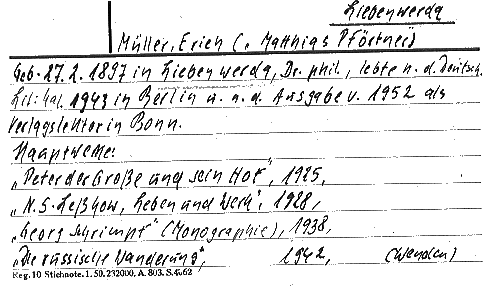 Liebenwerda
Müller, Erich (: Matthias Pförtner)
Geb. 27.2. 1897 in Liebenwerda, Dr. phil., lebte n. d. Deutsch.
Lit. Kal. 1943 in Berlin u. n. d. Ausgabe v. 1952 als
Verlagslektor in Bonn.
Hauptwerke:
„Peter der Große und sein Hof", 1925,
„N. S. Leßkow, Leben und Werk", 1928,
„Georg Schrimpf" (Monographie), 1938,
„Die russische Wanderung", 1942, (Wenden)
Reg. 10 Stichnote. 1. 50. 232000, A. 803. S. 4062